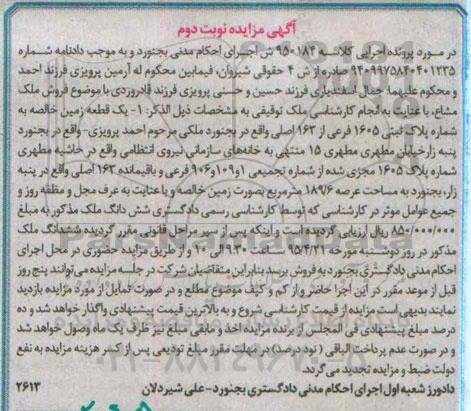 آگهی مزایده نوبت دوم
در مورد پرونده اجرایی کلاسه ۹۵۰۱۸۴ ش اجرای احکام مدنی بجنورد و به موجب دادنامه شماره
۹۴۰۹۹۷۵۸۴۰۴۰۱۲۳۵ صادره از ش ۴ حقوقی شیروان، فیمابین محکوم له آرمین پرویزی فرزند احمد
و محکوم علیهما: جمال اسفندیاری فرزند حسین و حسنی پرویزی فرزند قادروردی با موضوع فروش ملک
مشاع، با عنایت به انجام کارشناسی ملک توقیفی به مشخصات ذیل الذکر: ۱- یک قطعه زمین خالصه به
شماره پلاک ثبتی ۱۶۰۵ فرعی از ۱۶۳ اصلی واقع در بجنورد ملکی مرحوم احمد پرویزی- واقع در بجنورد
پنبه زار خیابان مطهری مطهری ۱۵ منتهی به خانه‌های سازمانی نیروی انتظامی واقع در حاشیه مطهری
شماره پلاک ۱۶۰۵ مجزی شده از شماره تجمیعی ۱و۱۰۹و۹۰۶ فرعی و باقیمانده ۱۶۳ اصلی واقع در پنبه
زار، بجنورد به مساحت عرصه ۱۸۹/۷۶ مترمربع بصورت زمین خالصه و با عنایت به عرف محل و مظنه روز و
جمیع عوامل موثر در کارشناسی که توسط کارشناسی رسمی دادگستری شش دانگ ملک مذکور به مبلغ
۸۵۰/۰۰۰/۰۰۰ ریال ارزیابی گردیده است و اینکه پس از سیر مراحل قانونی مقرر گردیده ششدانگ ملک
مذکور در روز دوشنبه مورخه ۹۵/۴/۲۱ ساعت ۹:۳۰ الی ۱۰ و از طریق مزایده حضوری در محل اجرای
احکام مدنی دادگستری بجنورد به فروش برسد بنابراین متقاضیان شرکت در جلسه مزایده می‌توانند پنج روز
قبل از موعد مقرر در این اجرا حاضر و از کم و کیف موضوع مطلع و در صورت تمایل از مورد مزایده بازدید
نمایند بدیهی است مزایده از قیمت کارشناسی شروع و به بالاترین قیمت پیشنهادی واگذار خواهد شد و ده
درصد مبلغ پیشنهادی فی المجلس از برنده مزایده اخذ و مابقی مبلغ نیز ظرف یک ماه وصول خواهد شد
و در صورت عدم پرداخت الباقی (نود درصد) در مهلت مقرر مبلغ تودیعی پس از کسر هزینه مزایده به نفع
دولت ضبط و مزایده تجدید می گردد.
دادورز شعبه اول اجرای احکام مدنی دادگستری بجنورد- علی شیردلان
۲۶۱۳